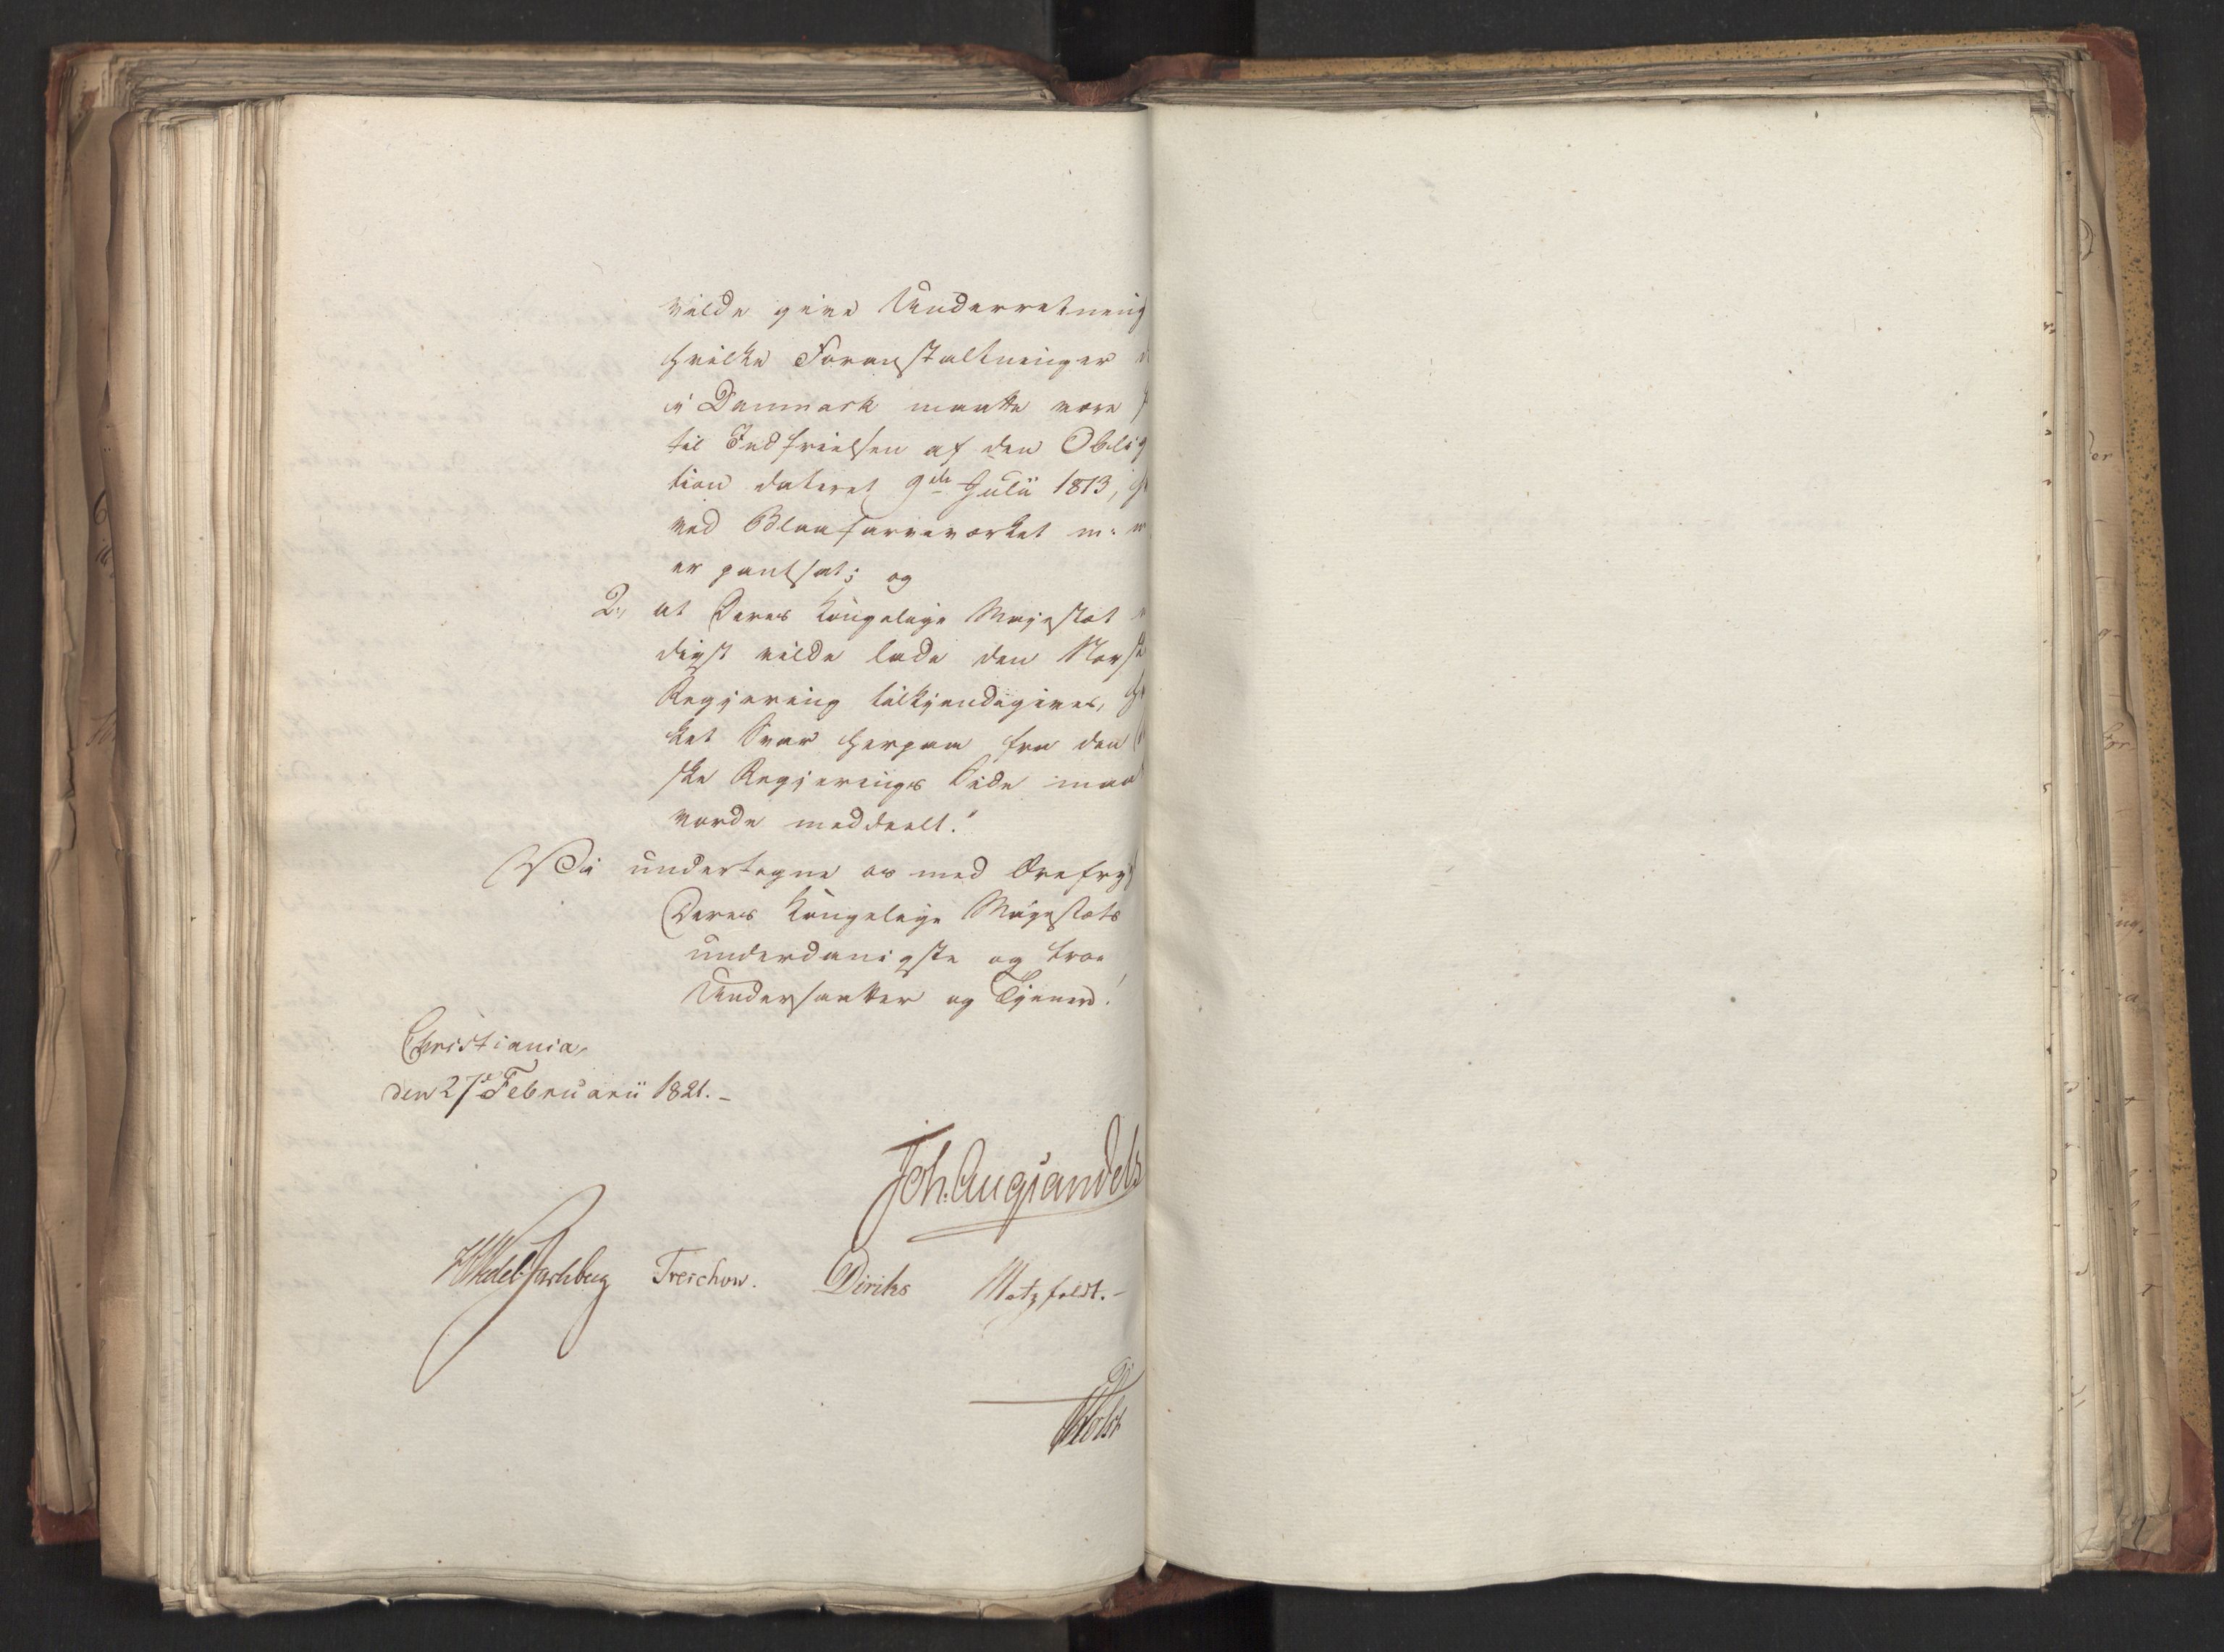 vilde give Underretning
hvilke Foranstaltninger
i Danmark maatte være
til Indfrielsen af den Oblig
tion dateret 9de Julii 1813,
ved Blaafarveværket m:
er pantsat; og
2, at Deres Kongelige Majestæt
digst vilde lade den Norsk
Regjering tilkjendegives,
ket Svar herpaa fra den
ske Regjerings Side maa
vorde meddeelt."
Vi undertegne os med Ærefry
Deres Kongelige Majestæts
underdanigste og troe
Undersaatter og Tjenere!
Christiania,
den 27de Februarii 1821.-
Joh. Aug Sandels
HWedel Jarlsberg Treschow. Diriks Motzfeldt.-
Holst